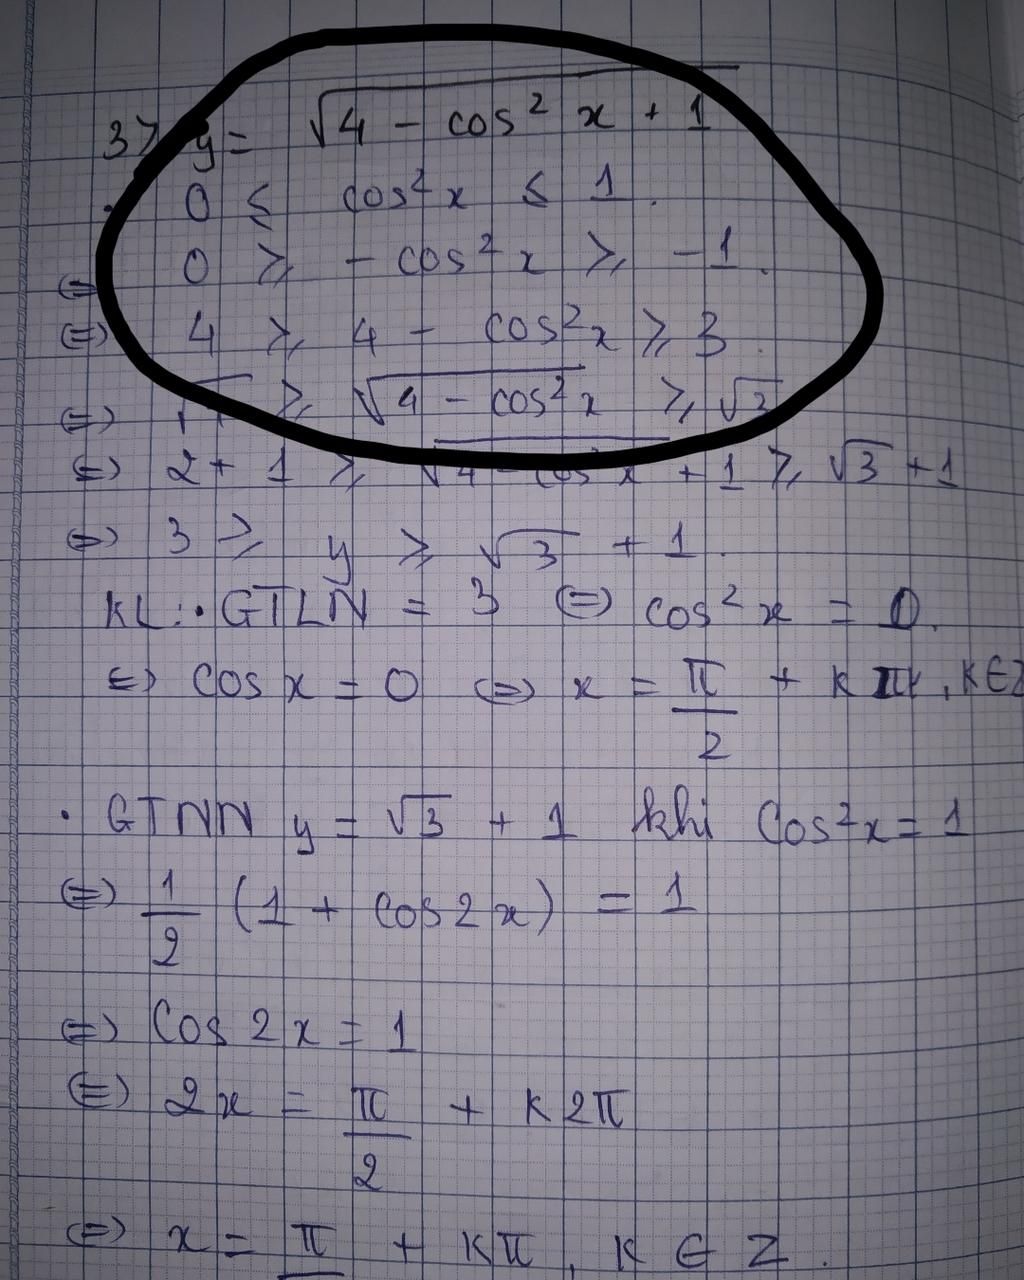 3> y = √(4 - cos² x + 1)
• 0 ≤ cos²x ≤ 1.
⇔ 0 ≥ - cos²x ≥ -1.
⇔ 4 ≥ 4 - cos²x ≥ 3.
⇔ ≥ √(4 - cos²x) ≥ √3
⇔ 2 + 1 ≥ √(4 - cos²x) + 1 ≥ √3 + 1
⇔ 3 ≥ y ≥ √3 + 1.
KL: • GTLN = 3 ⇔ cos²x = 0.
⇔ cos x = 0 ⇔ x = π/2 + kπ, k∈Z
• GTNN y = √3 + 1 khi Cos²x = 1
⇔ 1/2 (1 + cos2x) = 1
⇔ Cos 2x = 1
⇔ 2x = π/2 + k2π
⇔ x = π + kπ, k ∈ Z.